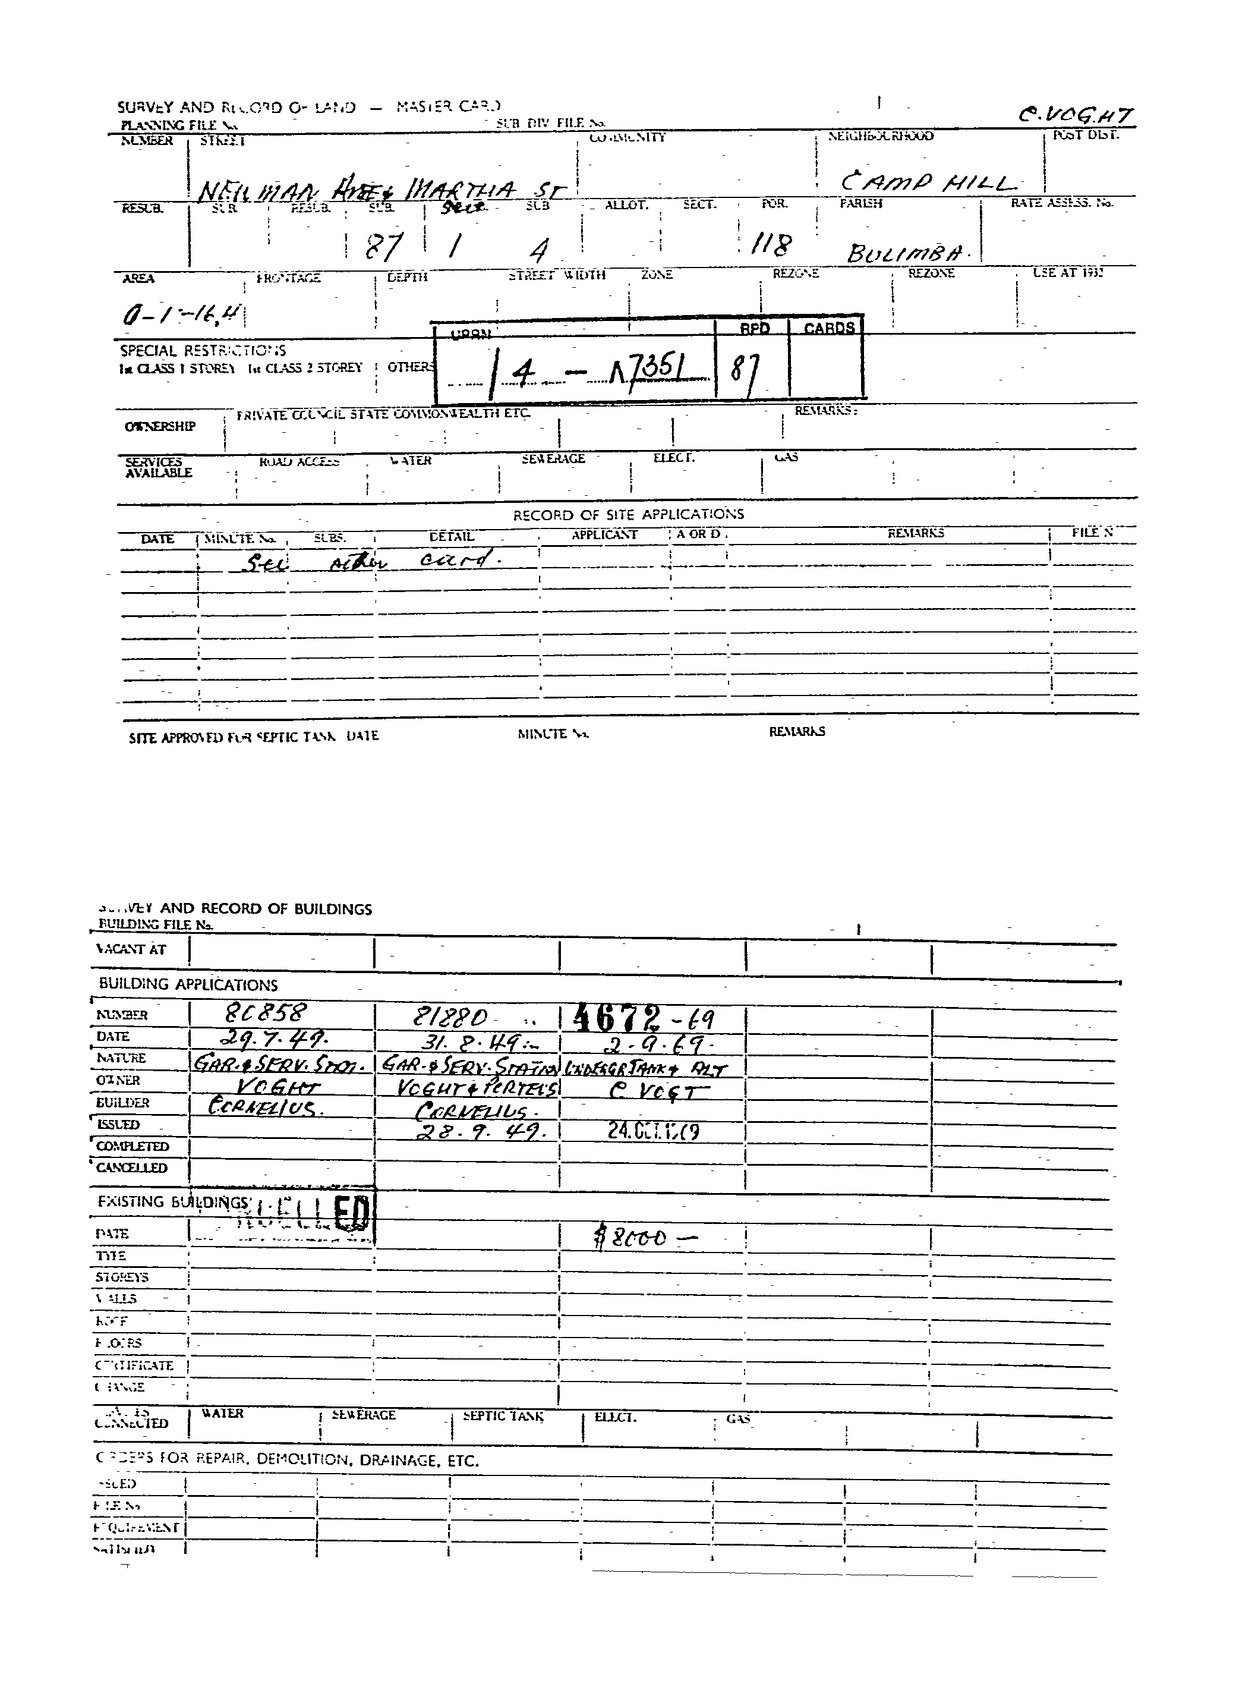 SURVEY AND RECORD OF LAND — MASTER CARD
C. VOGHT
PLANNING FILE No. SUB DIV FILE No.
NUMBER STREET COMMUNITY NEIGHBOURHOOD POST DIST.
NEILMAN AVE & MARTHA ST CAMP HILL
RESUB. SUB. RESUB. SUB. Sec. SUB ALLOT. SECT. POR. PARISH RATE ASSESS. No.
87 1 4 118 BULIMBA.
AREA FRONTAGE DEPTH STREET WIDTH ZONE REZONE REZONE USE AT
0-1-16,4
UPRN RPD CARDS
SPECIAL RESTRICTIONS
1st CLASS 1 STOREY 1st CLASS 2 STOREY OTHERS
87
PRIVATE COUNCIL STATE COMMONWEALTH ETC. REMARKS:
OWNERSHIP
SERVICES AVAILABLE ROAD ACCESS WATER SEWERAGE ELECT. GAS
RECORD OF SITE APPLICATIONS
DATE MINUTE No. SUBS. DETAIL APPLICANT A OR D. REMARKS FILE N
See other card.
SITE APPROVED FOR SEPTIC TANK DATE MINUTE No. REMARKS
SURVEY AND RECORD OF BUILDINGS
BUILDING FILE No.
VACANT AT
BUILDING APPLICATIONS
NUMBER 80858 81880 4672-69
DATE 29.7.49. 31.8.49. 2.9.69.
NATURE GAR. & SERV. STN. GAR. & SERV. STATION UNDERGR TANK & ALT
OWNER VOGHT VOGHT & PERTELS C VOGT
BUILDER CORNELIUS. CORNELIUS.
ISSUED 28.9.49. 24.OCT.1969
COMPLETED
CANCELLED
EXISTING BUILDINGS CANCELLED
DATE $8000—
TYPE
STOREYS
WALLS
ROOF
FLOORS
CERTIFICATE
CHANGE
CONNECTED WATER SEWERAGE SEPTIC TANK ELECT. GAS
ORDERS FOR REPAIR, DEMOLITION, DRAINAGE, ETC.
ISSUED
FILE No
REQUIREMENT
SATISFIED